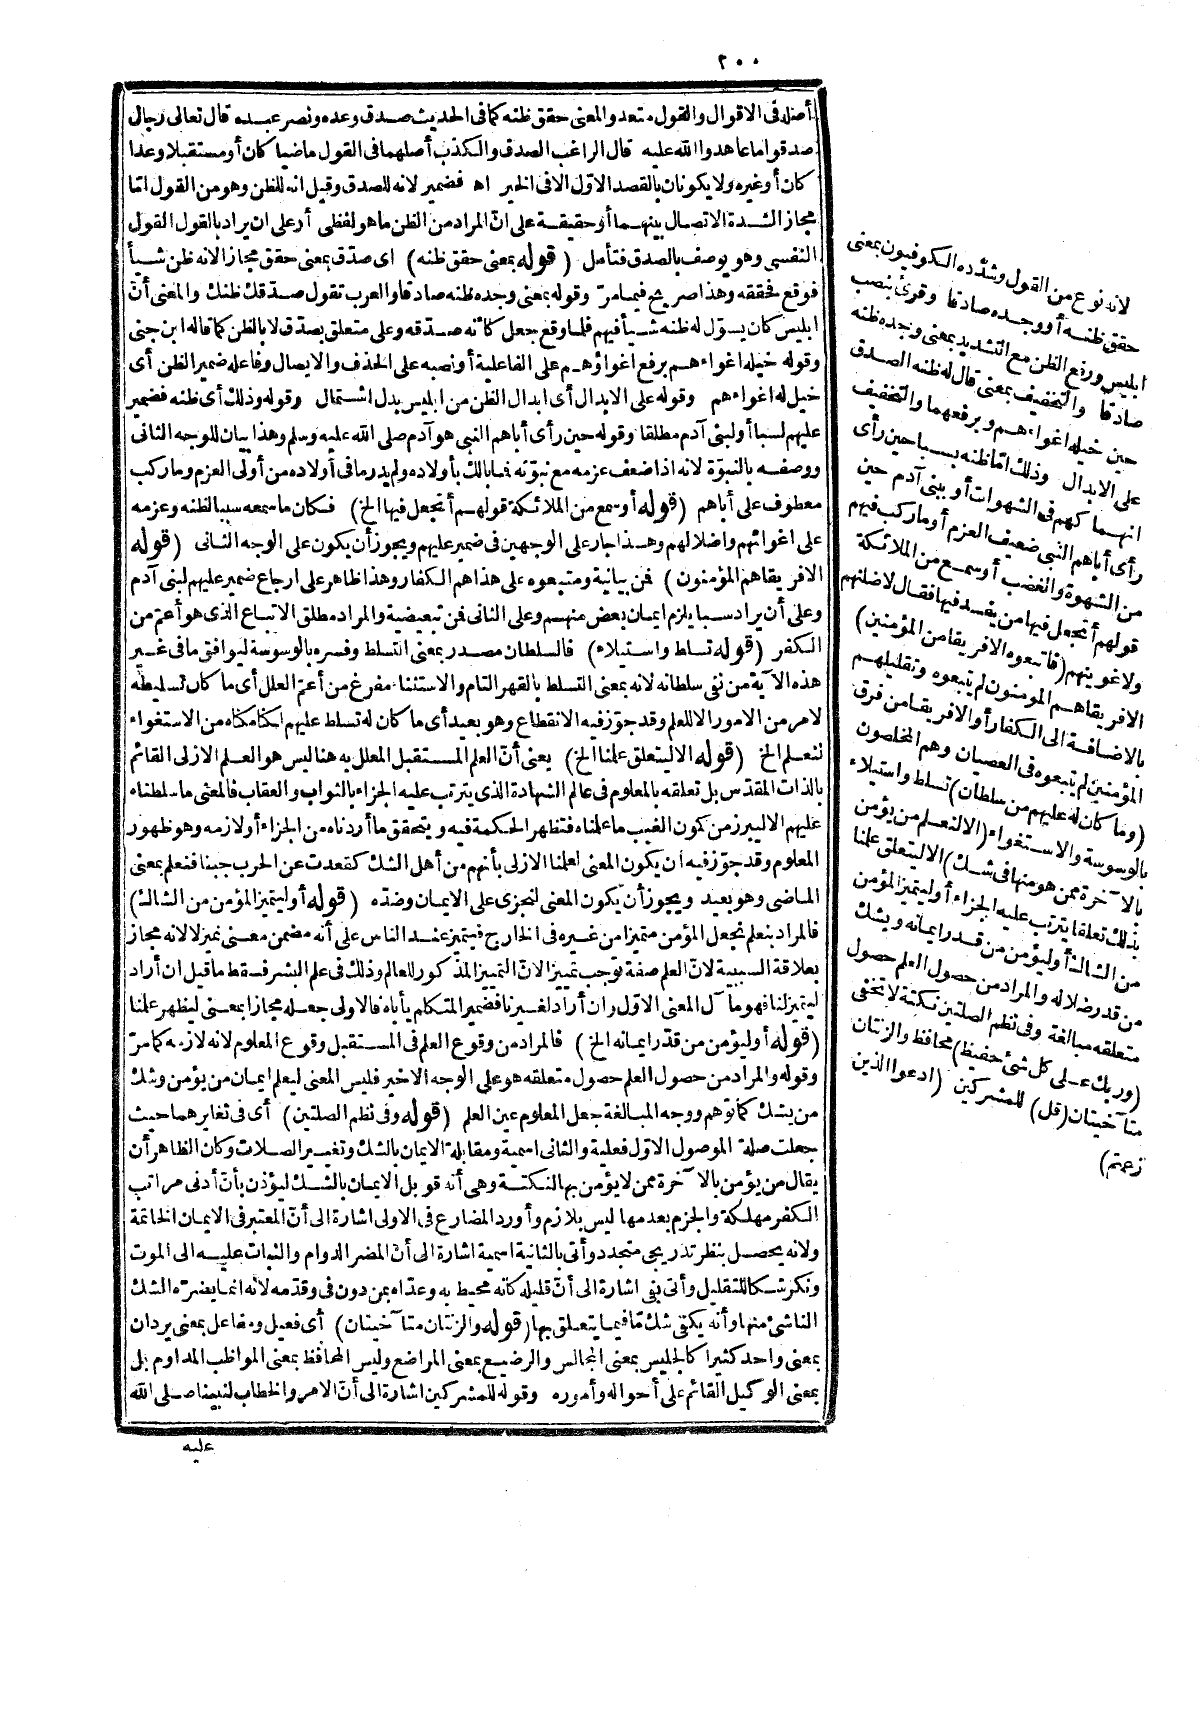 ٢٠٠
أصله فى الاقوال والقول متعد والمعنى حقق ظنه كما فى الحديث صدق وعده ونصر عبده قال تعالى رجال
صدقوا ما عاهدوا الله عليه قال الراغب الصدق والكذب أصلهما فى القول ماضيا كان أو مستقبلا وعدا
كان أو غيره ولا يكونان بالقصد الاوّل الا فى الخبر اه فضمير لانه للصدق وقيل انه للظن وهو من القول امّا
مجاز الشدة الاتصال بينهما أو حقيقة على انّ المراد من الظن ما هو لفظى أو على ان يراد بالقول القول
النفسى وهو يوصف بالصدق فتأمل (قوله بمعنى حقق ظنه) اى صدق بمعنى حقق مجازا لانه ظن شيأ
فوقع فحققه وهذا صريح فيما مرّ وقوله بمعنى وجده ظنه صادقا والعرب تقول صدّقك ظنك والمعنى أنّ
ابليس كان يسوّل له ظنه شيأ فيهم فلما وقع جعل كأنه صدّقه وعلى متعلق بصدق لا بالظن كما قاله ابن جنى
وقوله خيله اغواءهم برفع اغواؤهم على الفاعلية أو نصبه على الحذف والايصال وفاعله ضمير الظن أى
خيل له اغواءهم وقوله على الابدال أى ابدال الظن من ابليس بدل اشتمال وقوله وذلك أى ظنه فضمير
عليهم لسبا أو لبنى آدم مطلقا وقوله حين رأى أباهم النبى هو آدم صلى الله عليه وسلم وهذا بيان للوجه الثانى
ووصفه بالنبوّة لانه اذا ضعف عزمه مع نبوّته فما بالك بأولاده ولم يدر ما فى أولاده من أولى العزم وما ركب
معطوف على أباهم (قوله أو سمع من الملائكة قولهم أتجعل فيها الخ) فكان ما سمعه سببا لظنه وعزمه
على اغوائهم واضلالهم وهذا جار على الوجهين فى ضمير عليهم ويجوز أن يكون على الوجه الثانى (قوله
الا فريقا هم المؤمنون) فمن بيانية ومتبعوه على هذا هم الكفار وهذا ظاهر على ارجاع ضمير عليهم لبنى آدم
وعلى أن يراد سبا يلزم ايمان بعض منهم وعلى الثانى فمن تبعيضية والمراد مطلق الاتباع الذى هو أعم من
الكفر (قوله تسلط واستيلاء) فالسلطان مصدر بمعنى التسلط وفسره بالوسوسة ليوافق ما فى غير
هذه الآية من نفى سلطانه لانه بمعنى التسلط بالقهر التام والاستثناء مفرغ من أعمّ العلل أى ما كان تسليطه
لامر من الامور الا للعلم وقد جوّز فيه الانقطاع وهو بعيد أى ما كان له تسلط عليهم لكنا مكناه من الاستغواء
لنعلم الخ (قوله الا ليتعلق علمنا الخ) يعنى أنّ العلم المستقبل المعلل به هنا ليس هو العلم الازلى القائم
بالذات المقدّس بل تعلقه بالمعلوم فى عالم الشهادة الذى يترتب عليه الجزاء بالثواب والعقاب فالمعنى ما سلطناه
عليهم الا ليبرز من كون الغيب ما علمناه فتظهر الحكمة فيه ويتحقق ما أردناه من الجزاء أو لازمه وهو ظهور
المعلوم وقد جوّز فيه ان يكون المعنى لعلمنا الازلى بأنهم من أهل الشك كقعدت عن الحرب جبنا فنعلم بمعنى
الماضى وهو بعيد ويجوز أن يكون المعنى لنجزى على الايمان وضدّه (قوله أو ليتميز المؤمن من الشاك)
فالمراد بنعلم نجعل المؤمن متميزا من غيره فى الخارج فيتميز عند الناس على أنه مضمن معنى نميز لا لانه مجاز
بعلاقة السببية لانّ العلم صفة توجب تمييزا لانّ التمييز المذكور للعالم وذلك فى علم البشر فسقط ما قيل ان أراد
ليتميز لنا فهو مآل المعنى الاوّل وان أراد لغيرنا فضمير المتكلم يأباه فالاولى جعله مجازا بمعنى ليظهر علمنا
(قوله أو ليؤمن من قدّر ايمانه الخ) فالمراد من وقوع العلم فى المستقبل وقوع المعلوم لانه لازمه كما مرّ
وقوله والمراد من حصول العلم حصول متعلقه هو على الوجه الاخير فليس المعنى ليعلم ايمان من يؤمن وشك
من يشك كما توهم ووجه المبالغة جعل المعلوم عين العلم (قوله وفى نظم الصلتين) أى فى تغايرهما حيث
جعلت صلة الموصول الاوّل فعلية والثانى اسمية ومقابلة الايمان بالشك وتغيير الصلات وكان الظاهر أن
يقال من يؤمن بالآخرة ممن لا يؤمن بها لنكتة وهى أنه قوبل الايمان بالشك ليؤذن بأنّ أدنى مراتب
الكفر مهلكة والجزم بعدمها ليس بلازم وأورد المضارع فى الاولى اشارة الى أنّ المعتبر فى الايمان الخاتمة
ولانه يحصل بنظر تدريجى متجدد وأتى بالثانية اسمية اشارة الى أنّ المضر الدوام والثبات عليه الى الموت
ونكر شكا للتقليل وأتى بفى اشارة الى أنّ قليله كأنه محيط به وعدّاه بمن دون فى وقدّمه لانه انما يضرّه الشك
الناشئ منها وأنه يكفى شك مّا فيما يتعلق بها (قوله والزنتان متآخيتان) أى فعيل ومفاعل بمعنى يردان
بمعنى واحد كثيرا كالجليس بمعنى المجالس والرضيع بمعنى المراضع وليس المحافظ بمعنى المواظب المداوم بل
بمعنى الوكيل القائم على أحواله وأموره وقوله للمشركين اشارة الى أنّ الامر والخطاب لنبينا صلى الله
عليه
لانه نوع من القول وشدّده الكوفيون بمعنى
حقق ظنه أو وجده صادقا وقرئ بنصب
ابليس ورفع الظن مع التشديد بمعنى وجده ظنه
صادقا والتخفيف بمعنى قال له ظنه الصدق
حين خيله اغواءهم وبرفعهما والتخفيف
على الابدال وذلك امّا ظنه بسبا حين رأى
انهماكهم فى الشهوات أو ببنى آدم حين
رأى أباهم النبى ضعيف العزم أو ما ركب فيهم
من الشهوة والغضب أو سمع من الملائكة
قولهم أتجعل فيها من يفسد فيها فقال لاضلنهم
ولاغوينهم (فاتبعوه الا فريقا من المؤمنين)
الا فريقا هم المؤمنون لم يتبعوه وتقليلهم
بالاضافة الى الكفار أو الا فريقا من فرق
المؤمنين لم يتبعوه فى العصيان وهم المخلصون
(وما كان له عليهم من سلطان) تسلط واستيلاء
بالوسوسة والاستغواء (الا لنعلم من يؤمن
بالآخرة ممن هو منها فى شك) الا ليتعلق علمنا
بذلك تعلقا يترتب عليه الجزاء أو ليتميز المؤمن
من الشاك أو ليؤمن من قدر ايمانه ويشك
من قدر ضلاله والمراد من حصول العلم حصول
متعلقه مبالغة وفى نظم الصلتين نكتة لا تخفى
(وربك على كل شئ حفيظ) محافظ والزنتان
متآخيتان (قل) للمشركين (ادعوا الذين
زعمتم)